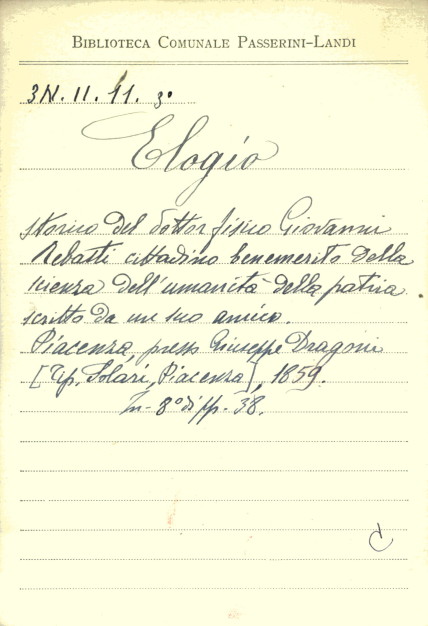 BIBLIOTECA COMUNALE PASSERINI-LANDI
3N. II. 11. 3°
Elogio
storico del dottor fisico Giovanni
Rebasti cittadino benemerito della
scienza dell'umanità della patria
scritto da un suo amico.
Piacenza, presso Giuseppe Dragoni
[Tip. Solari, Piacenza], 1859.
In-8° di pp. 38.